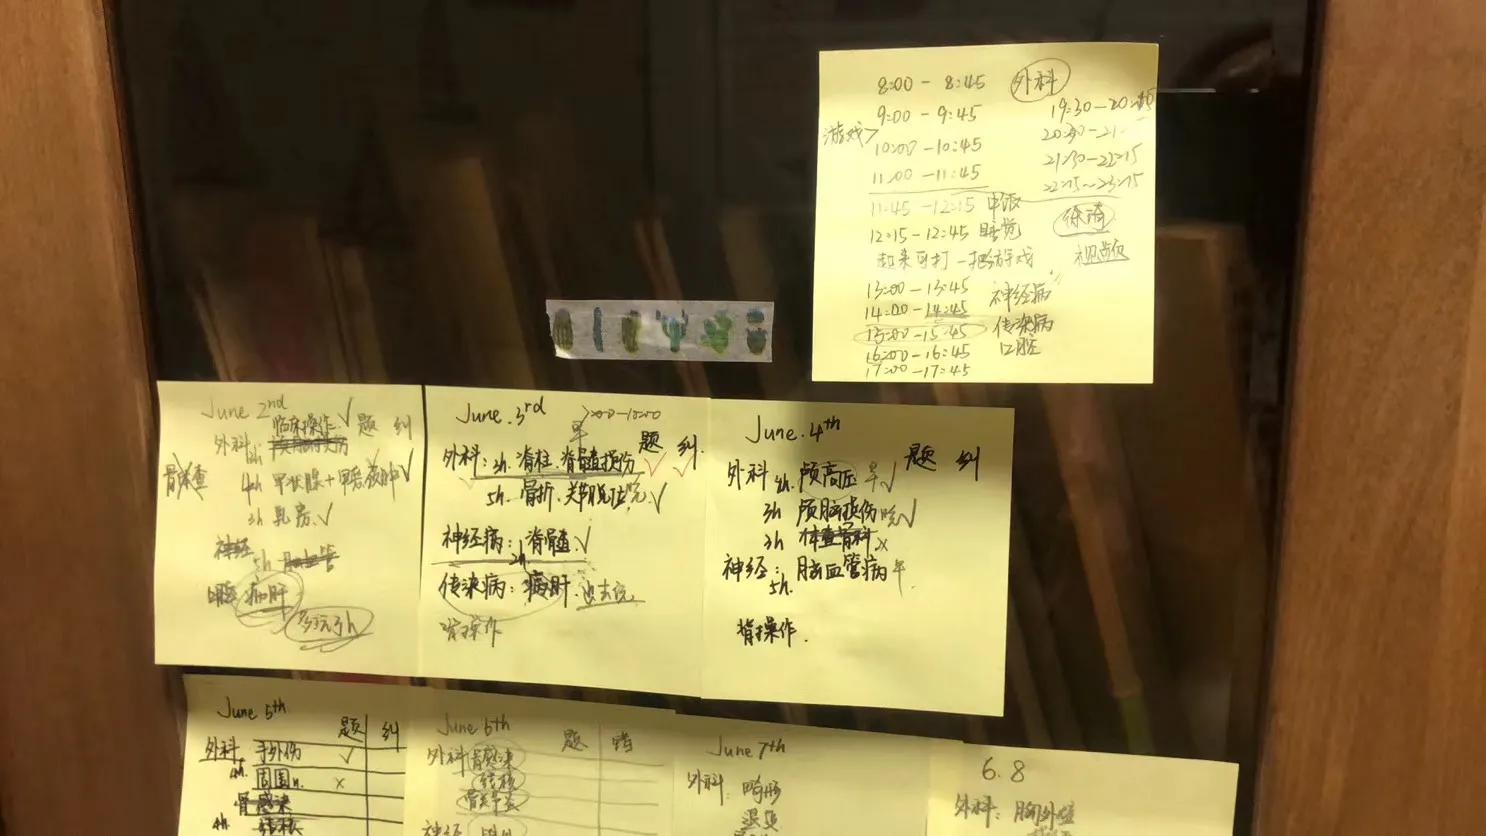 8:00 - 8:45 外科
9:00 - 9:45
游戏>
10:00 - 10:45
11:00 - 11:45
11:45 - 12:15 中饭
12:15 - 12:45 睡觉
起来可打一把游戏
13:00 - 13:45 神经病
14:00 - 14:45
15:00 - 15:45 传染病
16:00 - 16:45 口腔
17:00 - 17:45
19:30 - 20:15
20:30 - 21
21:30 - 22:15
22:15 ~ 23:15
徐琦
视频
June 2nd
临床操作 √ 题 纠
外科:
骨体查 4h 甲状腺+甲旁 √
3h 乳房 √
神经 5h 脑血管
口腔 病肝
多玩3h
June. 3rd
早 题 纠.
外科: 3h. 脊柱.脊髓损伤 √ √
5h. 骨折.关节脱位 晚 √
神经病: 脊髓 √
2h
传染病: 病肝.
背操作
June. 4th
题 纠
外科 2h. 颅高压 早 √
3h 颅脑损伤 晚 √
3h 体查骨科 x
神经: 脑血管病 午.
5h.
背操作.
June 5th
题 纠
外科 手外伤 √
4h. 周围n. x
骨感染
4h 结核
June 6th
题 错
外科 骨感染
结核
神经
June 7th
外科: 畸形
退变
6.8
外科: 胸外